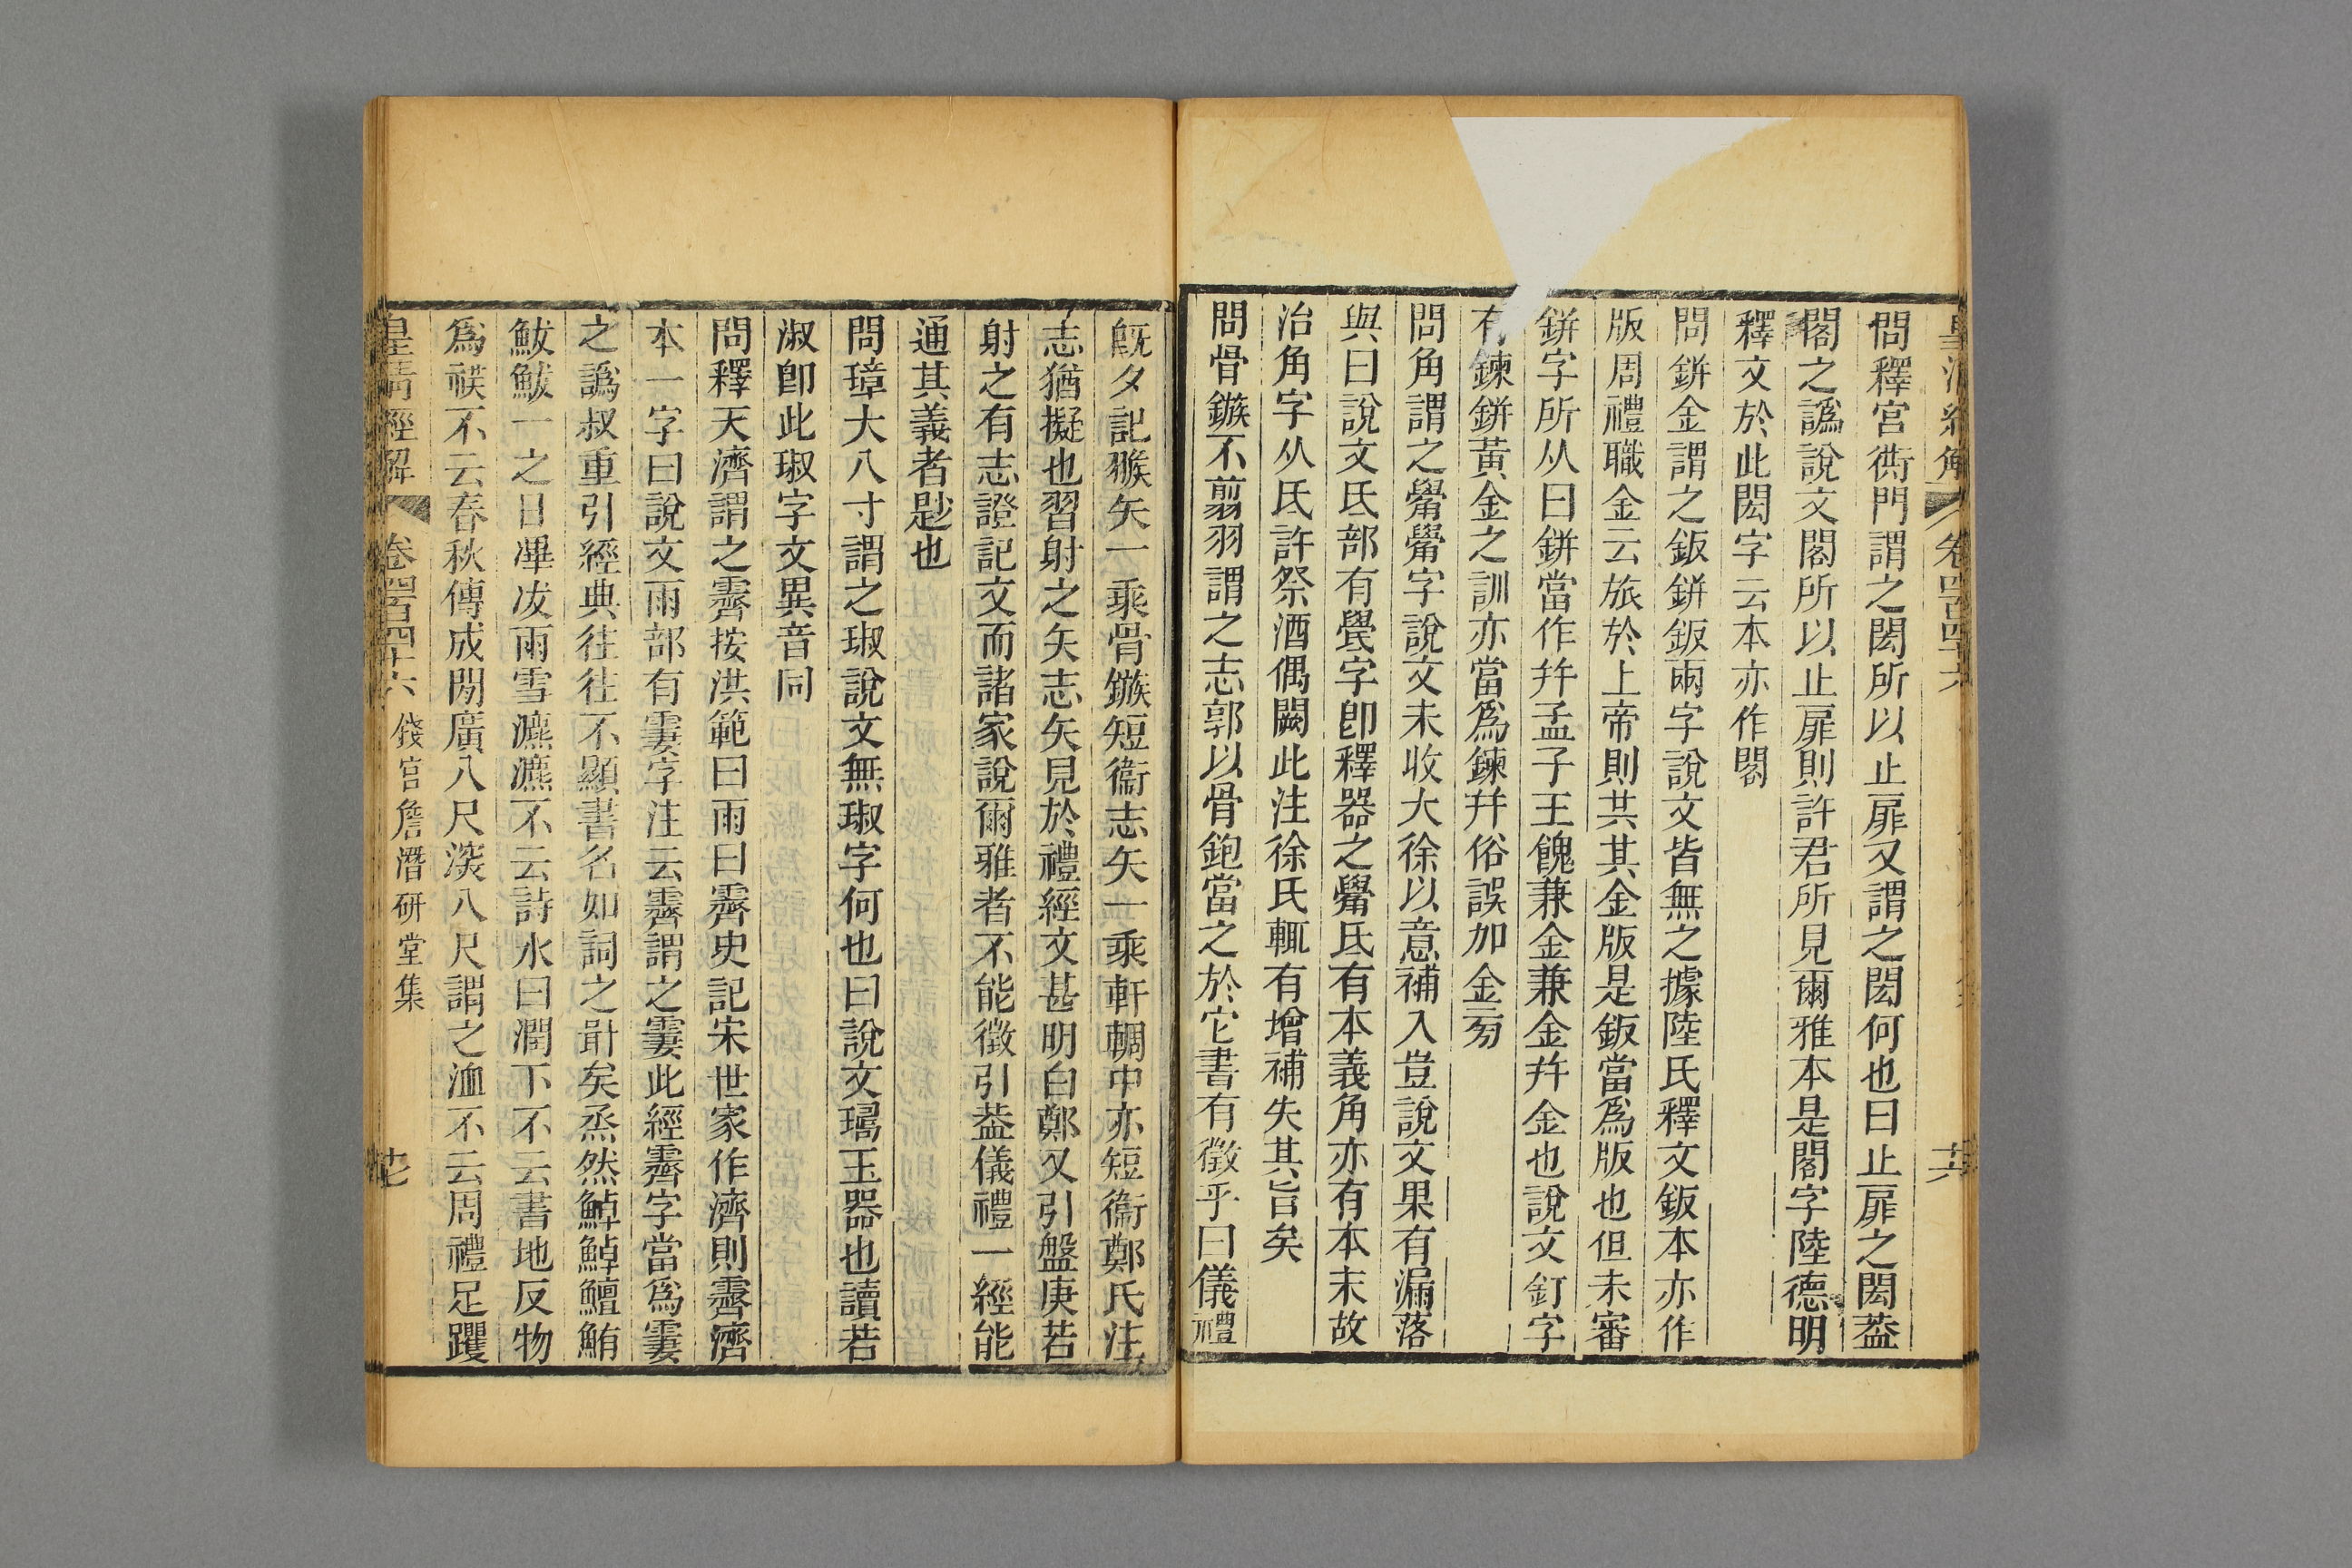 皇清經解
卷四百四十六
十六
問釋宮衖門謂之閎所以止扉又謂之閎何也曰止扉之閎葢
閣之譌說文閣所以止扉則許君所見爾雅本是閣字陸德明
釋文於此閎字云本亦作閣
問鉼金謂之鈑鉼鈑兩字說文皆無之據陸氏釋文鈑本亦作
版周禮職金云旅於上帝則共其金版是鈑當爲版也但未審
鉼字所从曰鉼當作幷孟子王餽兼金兼金幷金也說文釘字
有鍊鉼黃金之訓亦當爲鍊幷俗誤加金㫄
問角謂之觷觷字說文未收大徐以意補入豈說文果有漏落
與曰說文氏部有𦥯字卽釋器之觷氐有本義角亦有本末故
治角字从氐許祭酒偶闕此注徐氏輒有增補失其旨矣
問骨鏃不翦羽謂之志郭以骨鉋當之於它書有徵乎曰儀禮
旣夕記猴矢一乘骨鏃短衞志矢一乘軒輖中亦短衞鄭氏注
志猶擬也習射之矢志矢見於禮經文甚明白鄭又引盤庚若
射之有志證記文而諸家說爾雅者不能徵引葢儀禮一經能
通其義者尟也
問璋大八寸謂之琡說文無琡字何也曰說文璹玉器也讀若
淑卽此琡字文異音同
問釋天濟謂之霽按洪範曰雨曰霽史記宋世家作濟則霽濟
本一字曰說文雨部有霋字注云霽謂之霋此經霽字當爲霋
之譌叔重引經典往往不顯書名如詞之甹矣烝然鯙鯙鱣鮪
鮁鮁一之日滭冹雨雪瀌瀌不云詩水曰潤下不云書地反物
爲䄏不云春秋傳成閒廣八尺㴱八尺謂之洫不云周禮足躩
皇清經解
卷四百四十六
錢宮詹潛研堂集
十七